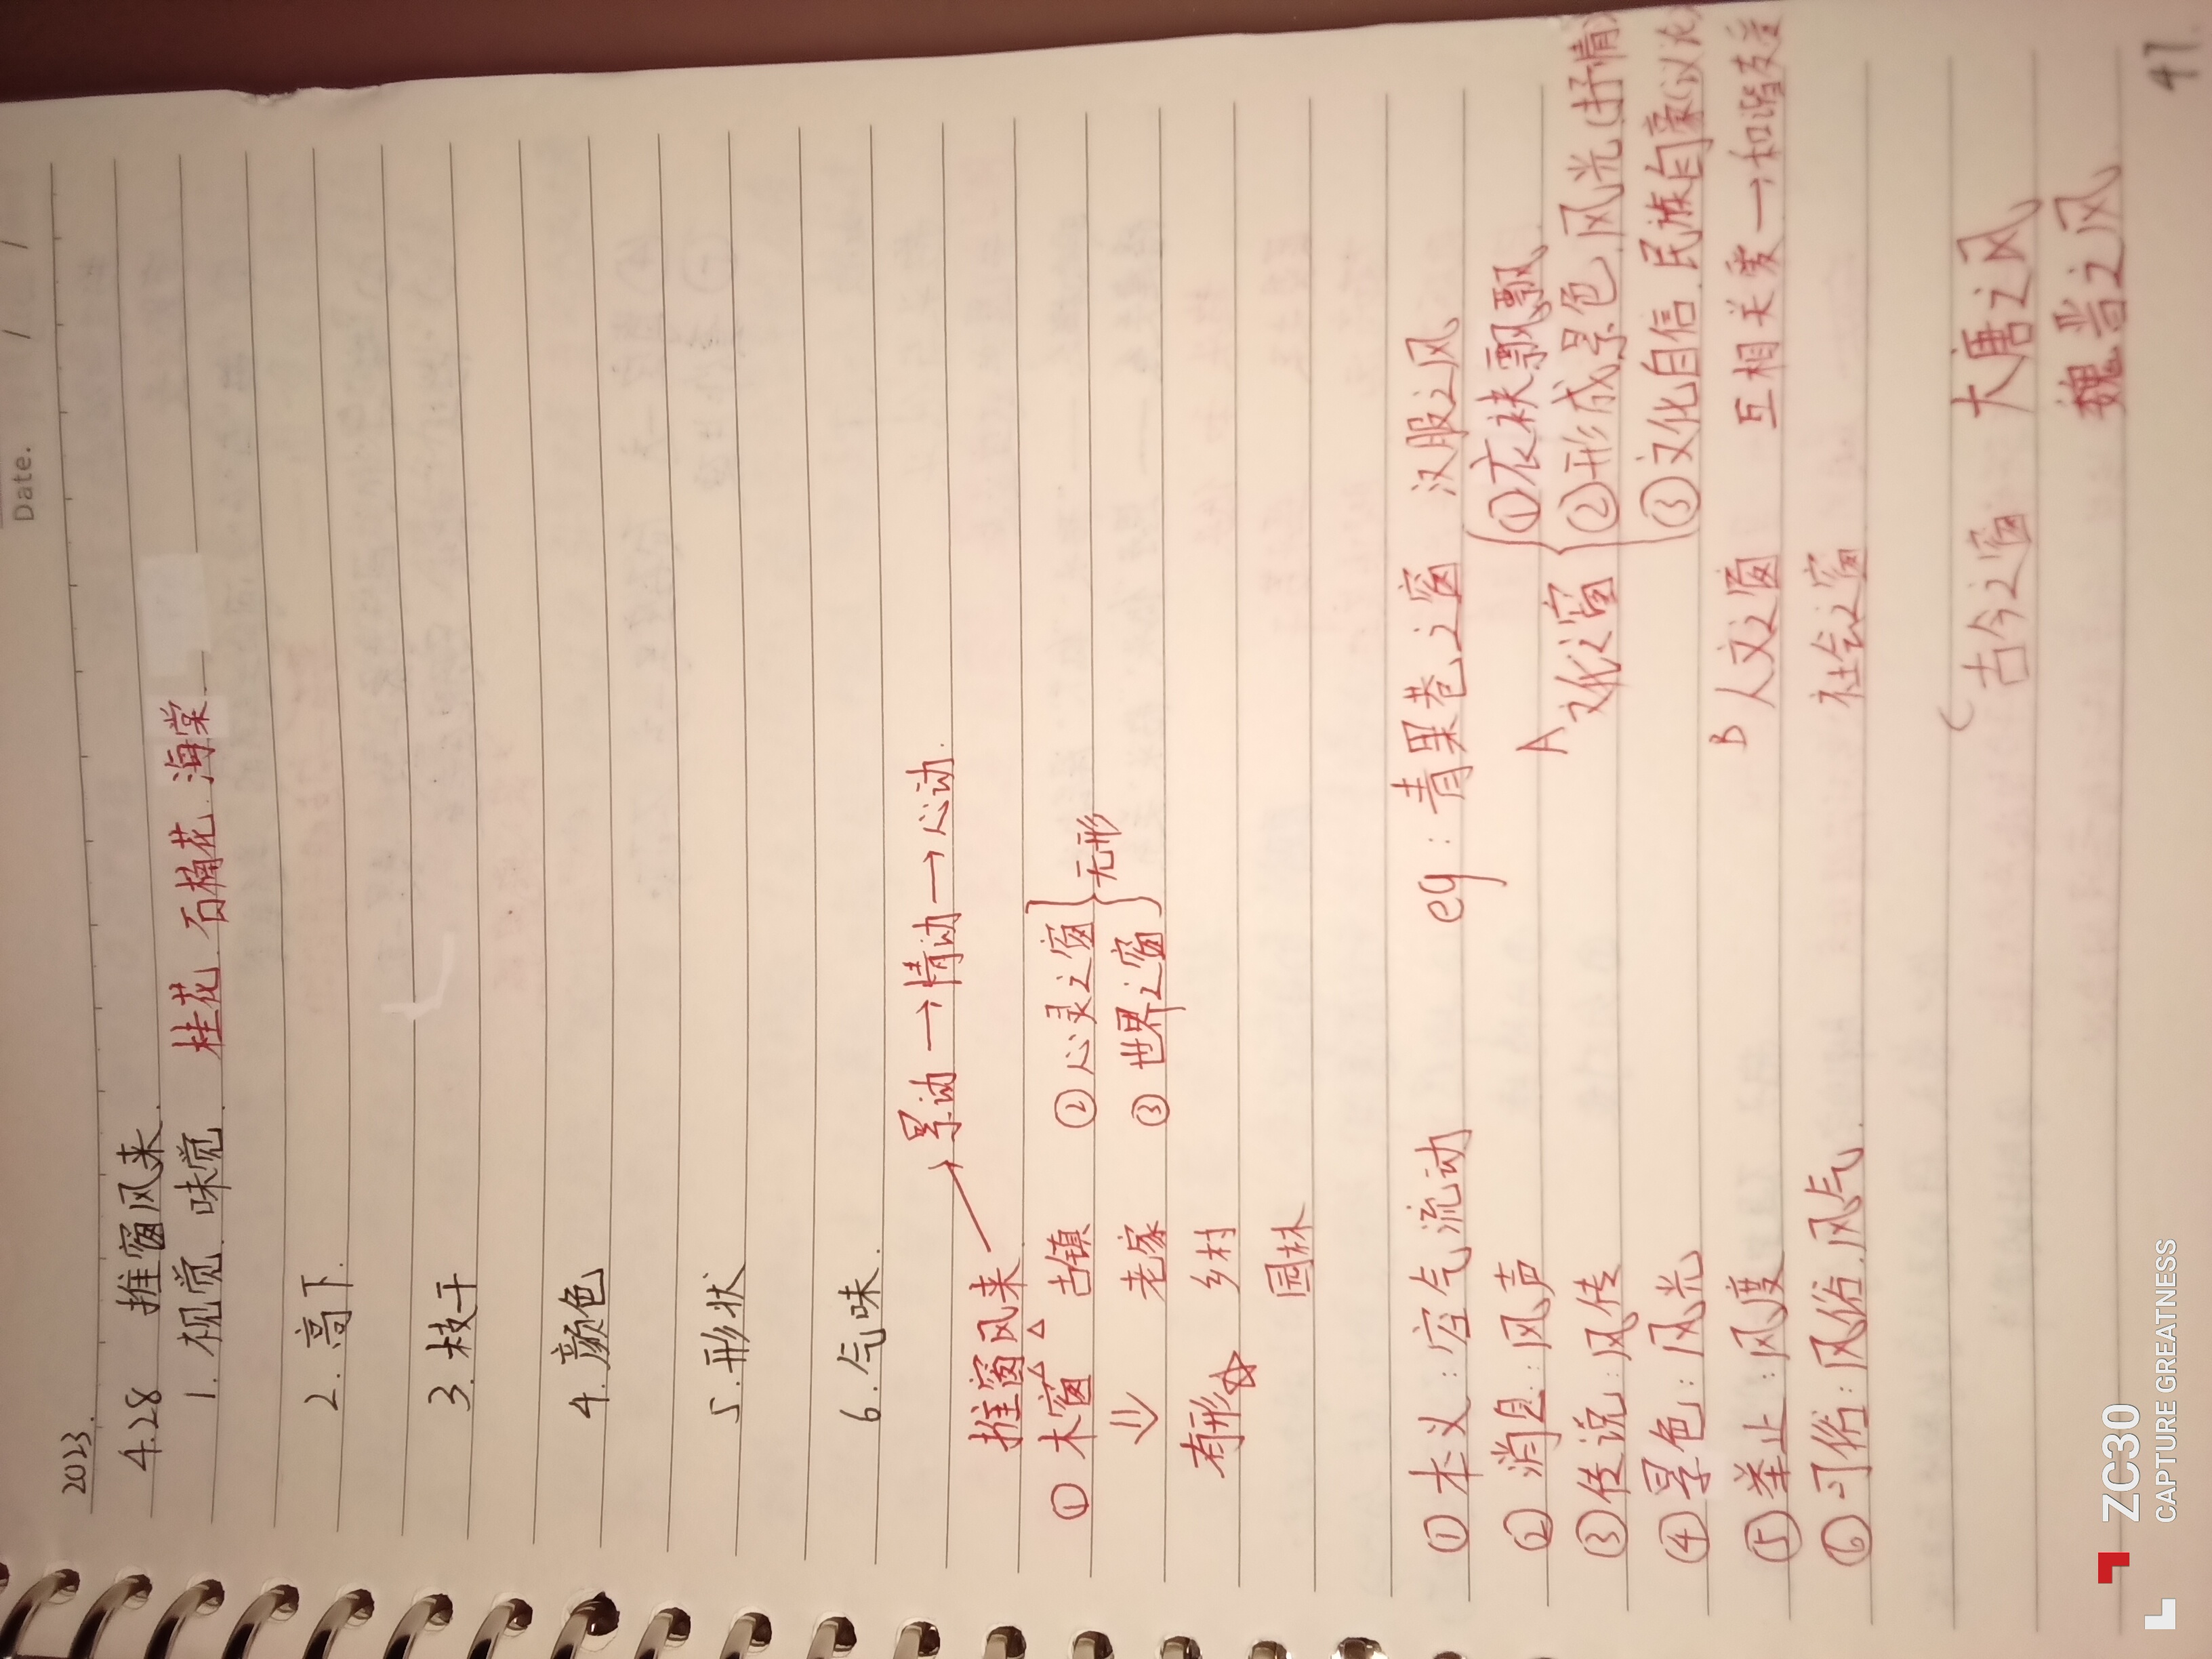 Date. / /
2023.
4.28 推窗风来.
1. 视觉 味觉. 桂花 石楠花 海棠
2. 高下.
3. 枝干
4. 颜色
5. 形状
6. 气味.
→景动→情动→心动.
推窗风来.
① 木窗 古镇 ② 心灵之窗 } 无形
⇓ 老家 ③ 世界之窗
有形☆ 乡村
园林
① 本义: 空气流动 eg: 青果巷之窗 汉服之风
② 消息: 风声 ①衣袂飘飘
③ 传说: 风传 A 文化之窗 ②形成景色.风光(抒情)
④ 景色: 风光 ③文化自信.民族自豪(议论)
⑤ 举止: 风度 B 人文之窗 互相关爱→和谐友善
⑥ 习俗: 风俗.风气. 社会之窗
C 古今之窗 大唐之风
魏晋之风
41.
ZC30
CAPTURE GREATNESS